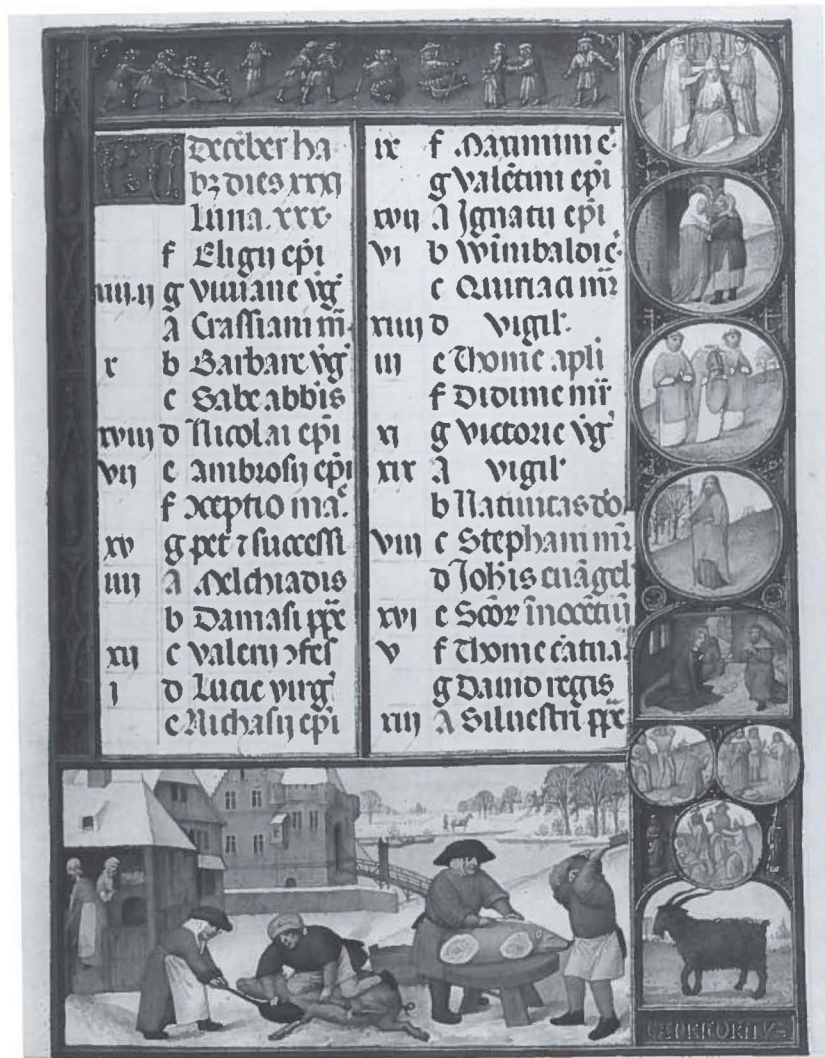 KL Deceber ha
bꝫ dies xxxi
luna. xxx.
f Eligij ep̄i
iiij.ij g viuiane v̄g
A Crassiani m̄.
x b Barbare v̄g
c Sabe abbis
xviij d Nicolai ep̄i
vij e Ambrosij ep̄i
f ↄceptio ma.
xv g pet ⁊ successi
iiij A Melchiadis
b Damasi pp̄e
xij c valerij ↄfes
j d Lucie virg
e Nichasij ep̄i
ix f Maximini e.
g valētini ep̄i
xvij A Ignatij ep̄i
vi b winibaldi e.
c Quiriaci m̄r
xiiij d vigil.
iij e Thome apl̄i
f Didime m̄r
xi g victorie v̄g
xix A vigil
b Natiuitas do.
viij c Stephani m̄r
d Joh̄is euāgel
xvi e Sc̄or īnocētiū
v f Thome cātua.
g Dauid regis
xiij A Siluestri pp̄e
CAPRICORNVS